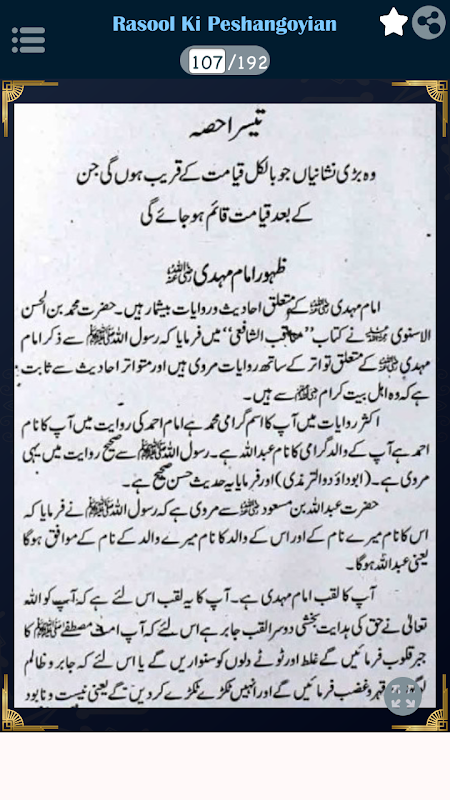 Rasool Ki Peshangoyian
107/192
تیسرا حصہ
وہ بڑی نشانیاں جو بالکل قیامت کے قریب ہوں گی جن
کے بعد قیامت قائم ہو جائے گی
ظہور امام مہدی رضی اللہ عنہ
امام مہدی رضی اللہ عنہ کے متعلق احادیث و روایات بیشمار ہیں۔ حضرت محمد بن الحسن
الاسنوی نے کتاب "مناقب الشافعی" میں فرمایا کہ رسول اللہ ﷺ سے ذکر امام
مہدی رضی اللہ عنہ کے متعلق تواتر کے ساتھ روایات مروی ہیں اور متواتر احادیث سے ثابت
ہے کہ وہ اہل بیت کرام سے ہیں۔
اکثر روایات میں آپ کا اسم گرامی محمد ہے امام احمد کی روایت میں آپ کا نام
احمد ہے آپ کے والد گرامی کا نام عبداللہ ہے۔ رسول اللہ ﷺ سے صحیح روایت میں یہی
مروی ہے۔ (ابوداؤد والترمذی) اور فرمایا یہ حدیث حسن صحیح ہے۔
حضرت عبداللہ بن مسعود رضی اللہ عنہ سے مروی ہے کہ رسول اللہ ﷺ نے فرمایا کہ
اس کا نام میرے نام کے اور اس کے والد کا نام میرے والد کے نام کے موافق ہوگا
یعنی عبداللہ ہوگا۔
آپ کا لقب امام مہدی ہے۔ آپ کا یہ لقب اس لئے ہے کہ آپ کو اللہ
تعالیٰ نے حق کی ہدایت بخشی دوسرا لقب جابر ہے اس لئے کہ آپ امت مصطفےٰ ﷺ کا
جبر قلوب فرمائیں گے غلط اور ٹوٹے دلوں کو سنواریں گے یا اس لئے کہ جابر و ظالم
قہر و غضب فرمائیں گے اور انہیں ٹکڑے ٹکڑے کر دیں گے یعنی نیست و نابود